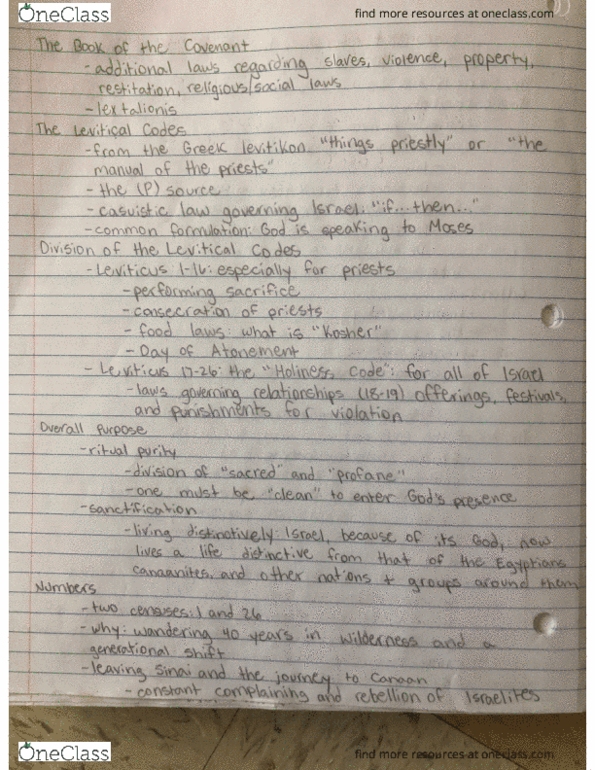 OneClass
find more resources at oneclass.com
The Book of the Covenant
-additional laws regarding slaves, violence, property,
restitation, religious/social laws
-lex talionis
The Levitical Codes
-from the Greek levitikon "things priestly" or "the
manual of the priests"
-the (P) source
-casuistic law governing Israel. "if...then..."
-common formulation: God is speaking to Moses
Division of the Levitical Codes
-Leviticus 1-16: especially for priests
-performing sacrifice
-consecration of priests
- food laws: what is "Kosher"
- Day of Atonement
- Leviticus 17-26: the "Holiness Code": for all of Israel
-laws governing relationships (18-19) offerings, festivals,
and punishments for violation
Overall Purpose
-ritual purity
-division of "sacred" and "profane"
-one must be "clean" to enter God's presence
-sanctification
-living distinctively: Israel, because of its God, now
lives a life distinctive from that of the Egyptians
Canaanites, and other nations + groups around them
Numbers
-two censuses: 1 and 26
-why: wandering 40 years in wilderness and a
generational shift
-leaving Sinai and the journey to Canaan
- constant complaining and rebellion of Israelites
OneClass
find more resources at oneclass.com